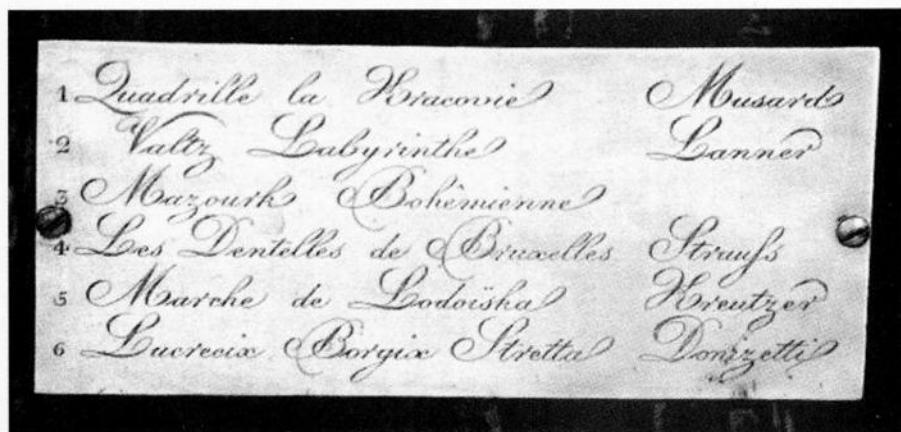 1 Quadrille la Kracovie Musard
2 Valtz Labyrinthe Lanner
3 Mazourk Bohêmienne
4 Les Dentelles de Bruxelles Strauſs
5 Marche de Lodoïska Kreutzer
6 Lucrecix Borgix Stretta Donizetti